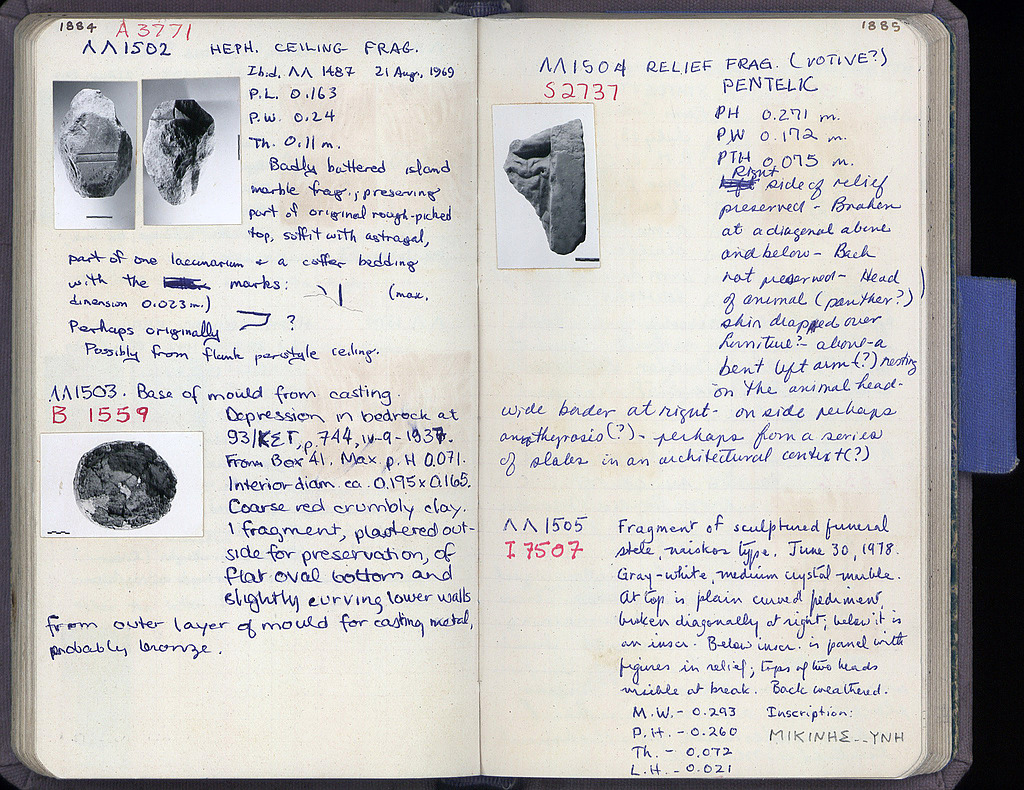 1884 A 3771
ΛΛ1502 HEPH. CEILING FRAG.
Ibid, ΛΛ 1487 21 Aug, 1969
P.L. 0.163
P.W. 0.24
Th. 0.11 m.
Badly battered island
marble frag., preserving
part of original rough-picked
top, soffit with astragal,
part of one lacunarium & a coffer bedding
with the marks: (max.
dimension 0.023 m.)
Perhaps originally ?
Possibly from flank peristyle ceiling.
ΛΛ1503. Base of mould from casting.
B 1559
Depression in bedrock at
93/ΚΣΤ, p. 744, IV-9-1937.
From Box 41. Max. p. H 0.071.
Interior diam. ca. 0.195 x 0.165.
Coarse red crumbly clay.
1 fragment, plastered out-
side for preservation, of
flat oval bottom and
slightly curving lower walls
from outer layer of mould for casting metal,
probably bronze.
1885
ΛΛ1504 RELIEF FRAG. (VOTIVE?)
S 2737 PENTELIC
PH 0.271 m.
PW 0.172 m.
PTH 0.075 m.
Right side of relief
preserved - Broken
at a diagonal above
and below - Back
not preserved - Head
of animal (panther?)
skin draped over
furniture? - above - a
bent left arm (?) resting
on the animal head -
wide border at right - on side perhaps
anathyrosis (?) - perhaps from a series
of slabs in an architectural context (?)
ΛΛ 1505
I 7507
Fragment of sculptured funeral
stele, naiskos type. June 30, 1978.
Gray-white, medium crystal marble.
At top is plain curved pediment,
broken diagonally at right; below it is
an inscr. Below inscr. is panel with
figures in relief; tops of two heads
visible at break. Back weathered.
M.W. - 0.293 Inscription:
P.H. - 0.260 ΜΙΚΙΝΗΣ--ΥΝΗ
Th. - 0.072
L.H. - 0.021